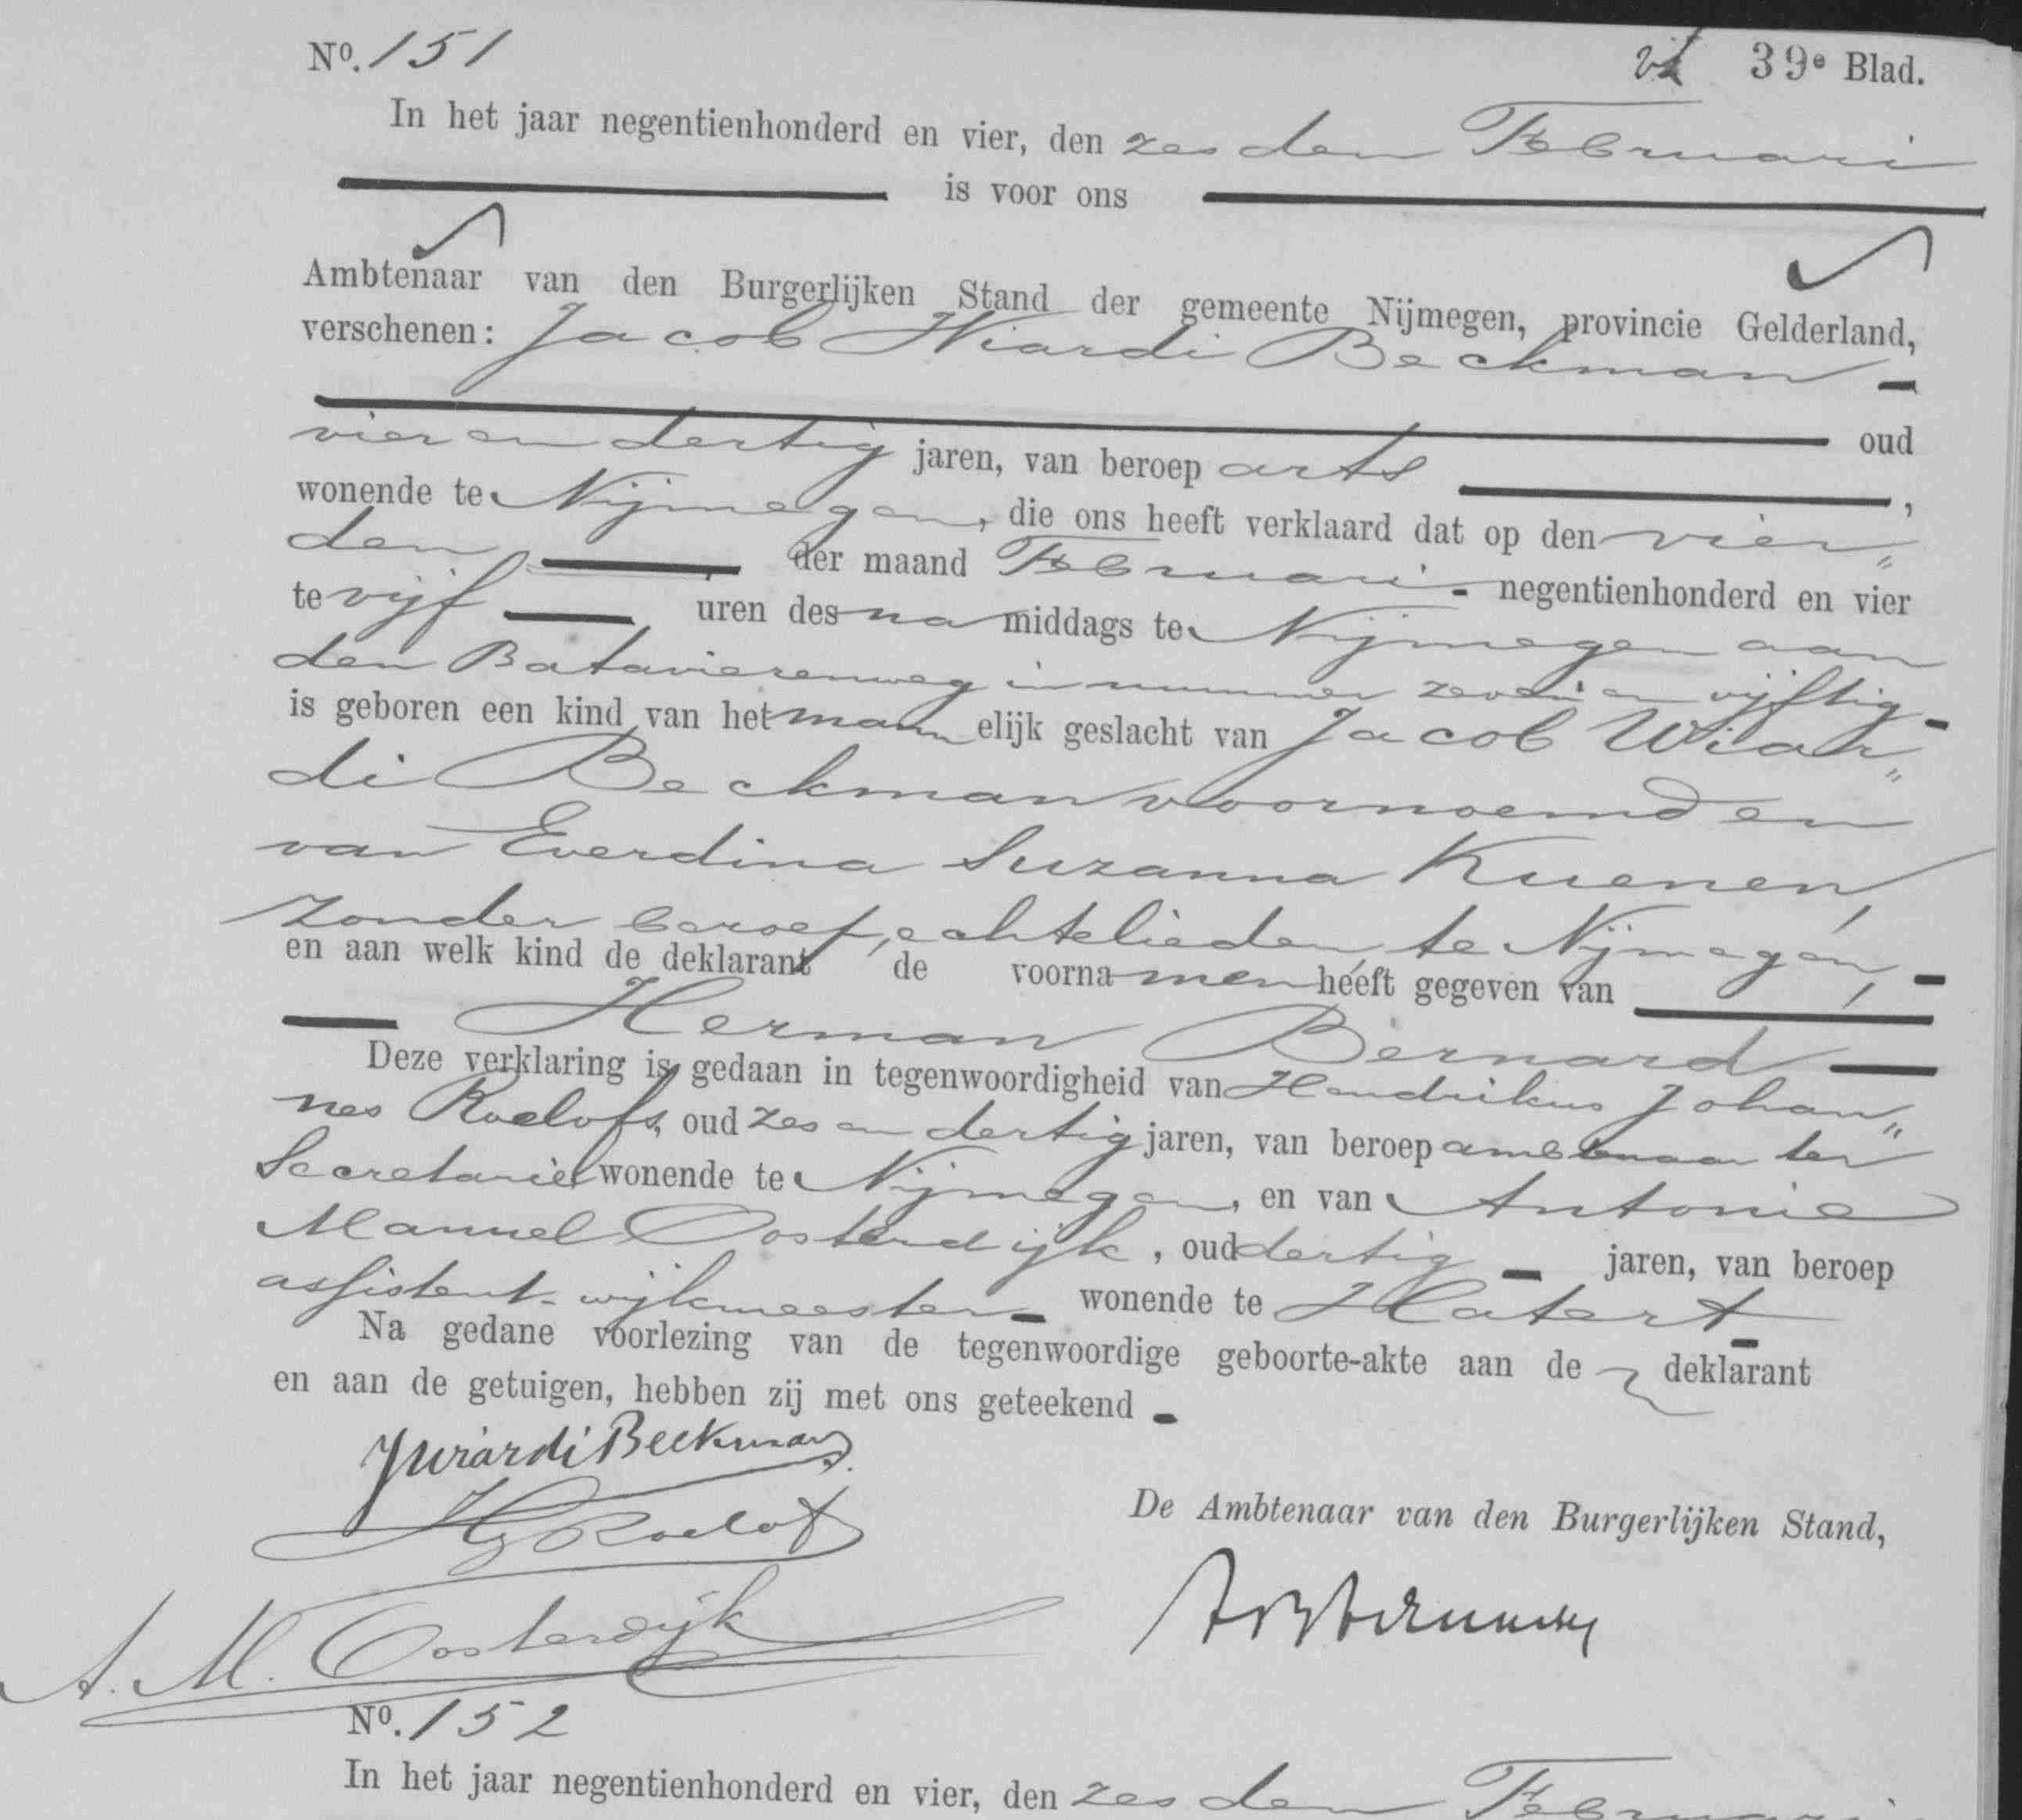 No. 151
39e Blad.
In het jaar negentienhonderd en vier, den zesden Februari
is voor ons
Ambtenaar van den Burgerlijken Stand der gemeente Nijmegen, provincie Gelderland,
verschenen: Jacob Wiardi Beckman
oud
vier en dertig jaren, van beroep arts ,
wonende te Nijmegen, die ons heeft verklaard dat op den vier„
den der maand Februari negentienhonderd en vier
te vijf uren des na middags te Nijmegen aan
den Batavierenweg in nummer zeven en vijftig
is geboren een kind van het mannelijk geslacht van Jacob Wiar„
di Beckman voornoemd en
van Everdina Suzanna Kuenen,
zonder beroep, echtelieden, te Nijmegen,
en aan welk kind de deklarant de voornamen heeft gegeven van
Herman Bernard
Deze verklaring is gedaan in tegenwoordigheid van Hendrikus Johan„
nes Roelofs, oud zes en dertig jaren, van beroep ambtenaar ter
Secretarie wonende te Nijmegen, en van Antonie
Manuel Oosterdijk, oud dertig jaren, van beroep
assistent-wijkmeester wonende te Hatert
Na gedane voorlezing van de tegenwoordige geboorte-akte aan de deklarant
en aan de getuigen, hebben zij met ons geteekend
JWiardiBeckman
HJRoelofs
De Ambtenaar van den Burgerlijken Stand,
A. M. Oosterdijk
No. 152
In het jaar negentienhonderd en vier, den zesden Februari